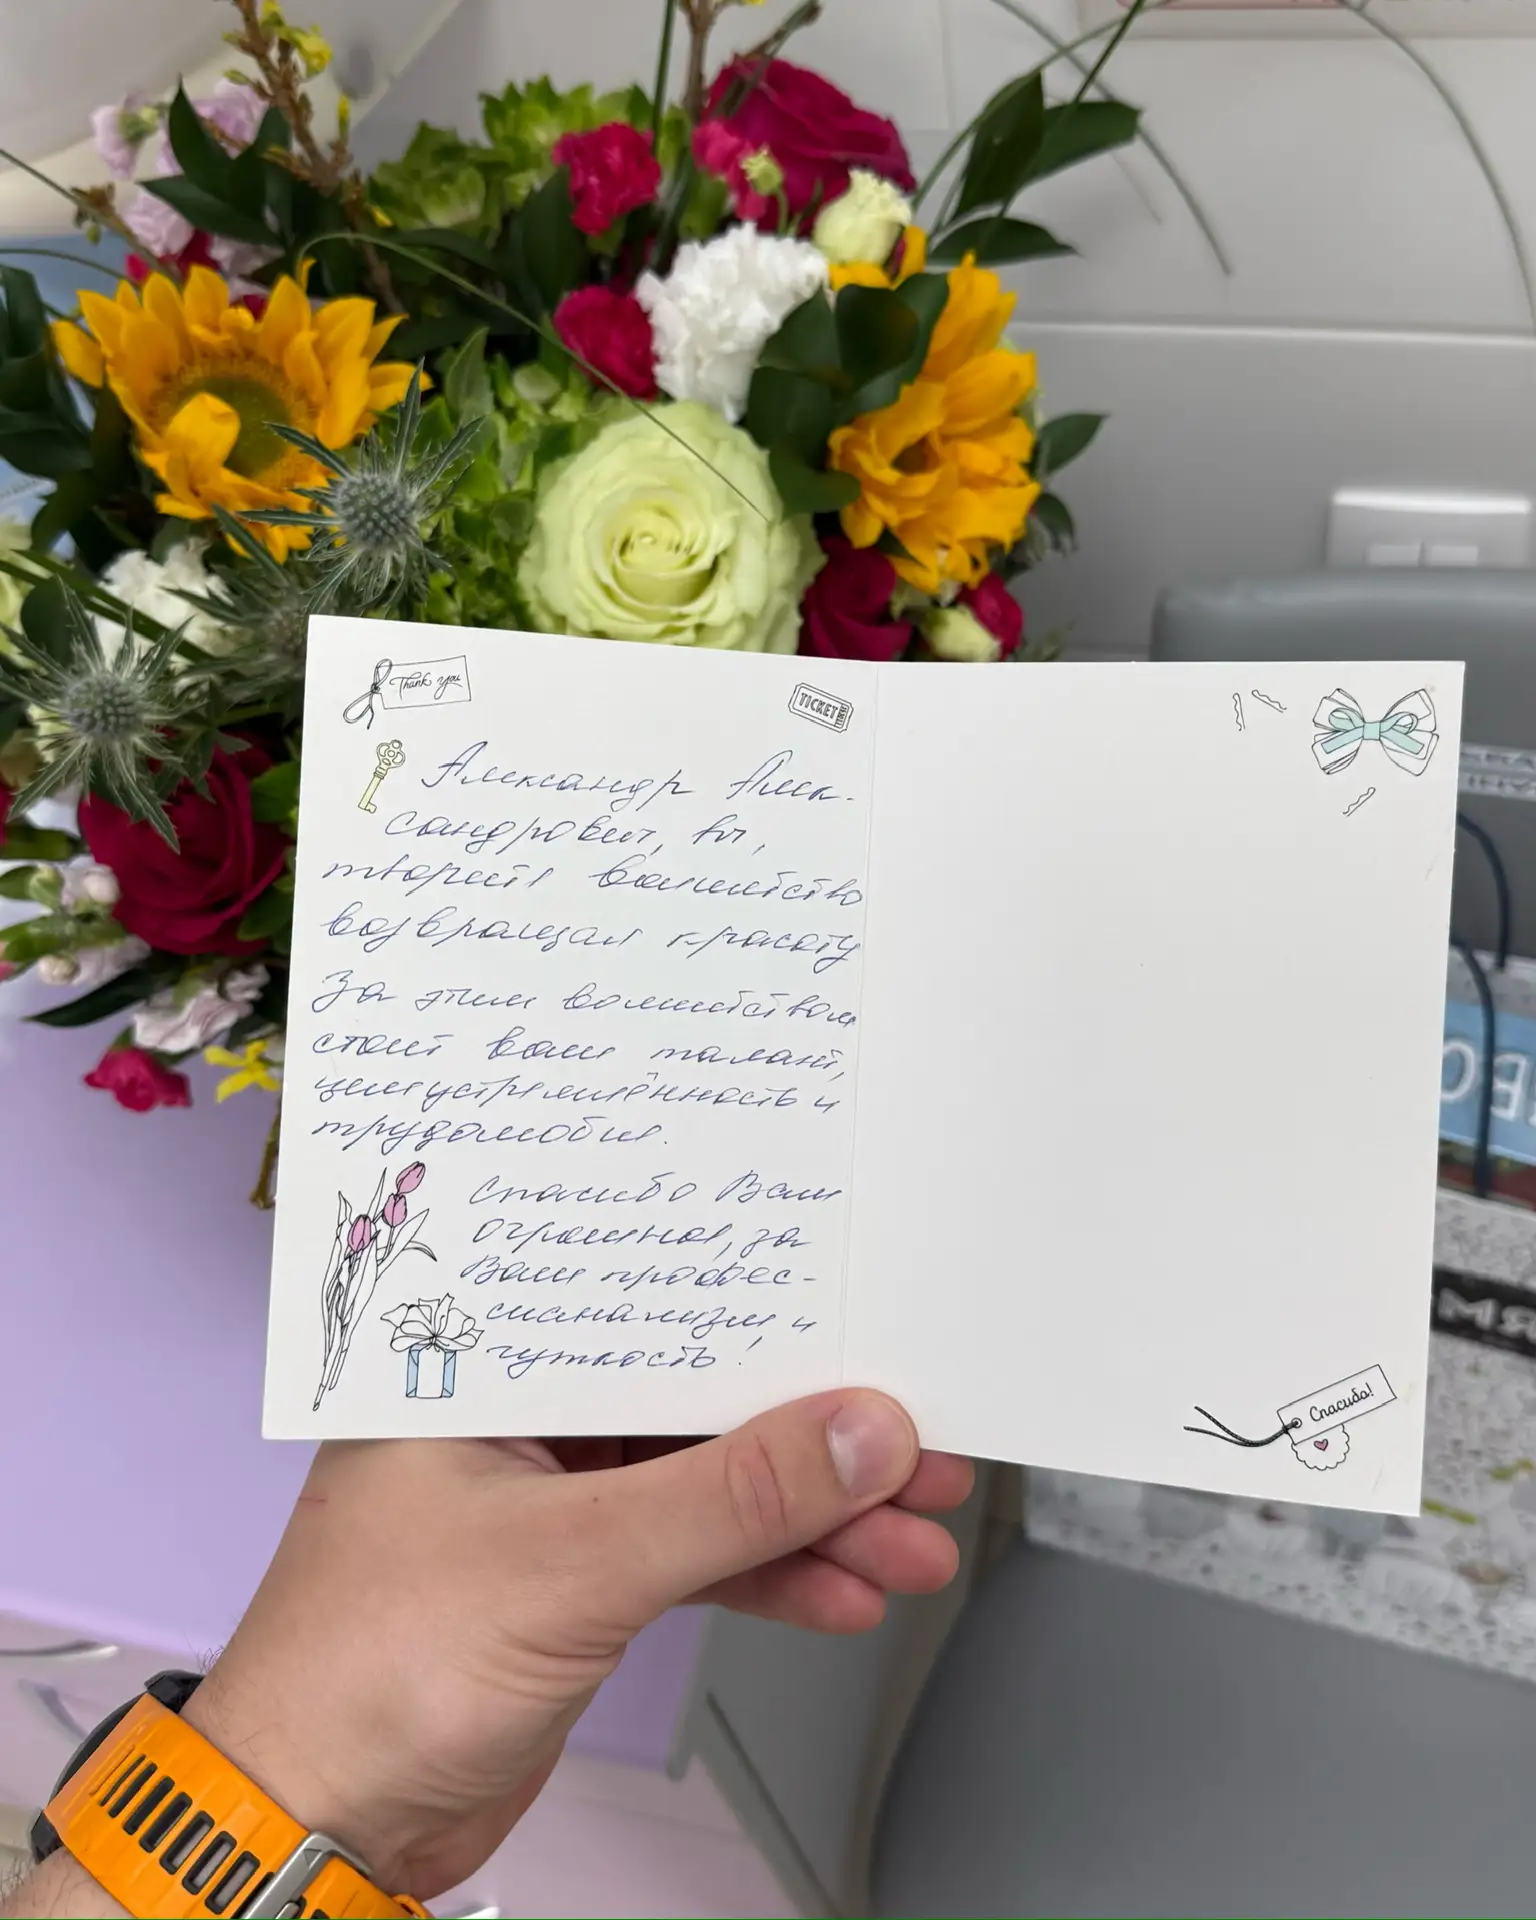 Thank you
TICKET
Александр Алек-
сандрович, вы,
творите волшебство
возвращая красоту
За этим волшебством
стоит ваш талант,
целеустремлённость и
трудолюбие.
Спасибо Вам
огромное, за
Ваш профес-
сионализм, и
чуткость!
Спасибо!